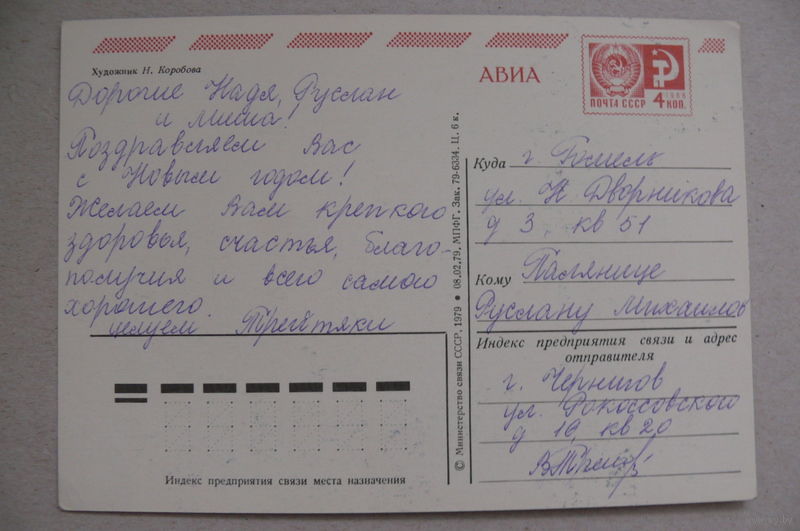 Художник Н. Коробова
Дорогие Надя, Руслан
и Миша!
Поздравляем Вас
с Новым годом!
Желаем Вам крепкого
здоровья, счастья, благо-
получия и всего самого
хорошего.
целуем Третяки
Индекс предприятия связи места назначения
© Министерство связи СССР, 1979 ● 08.02.79. МПФГ. Зак. 79-6334. Ц. 6 к.
АВИА
ПОЧТА СССР
1966
4 КОП.
Куда г. Гомель
ул. Н Дворникова
д 3 кв 51
Кому Палянице
Руслану Михайлов
Индекс предприятия связи и адрес
отправителя
г. Чернигов
ул. Рокоссовского
д 19 кв 20